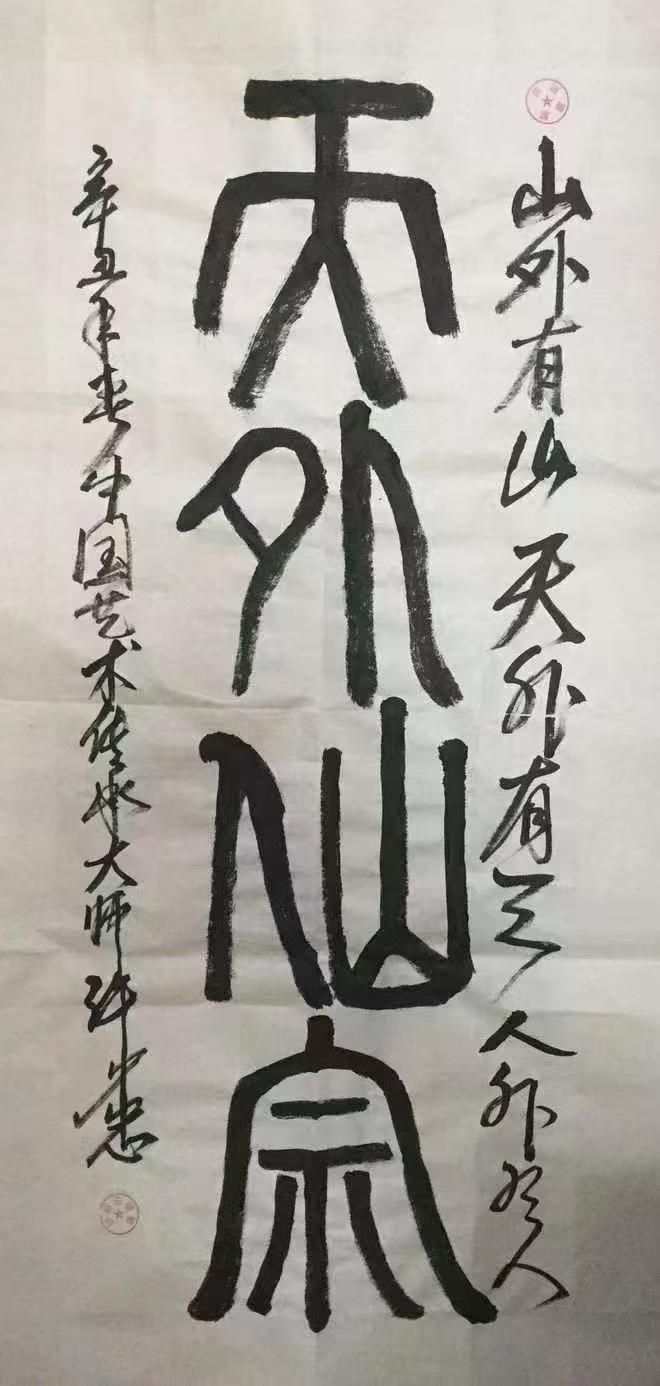 山外有山天外有天人外有人
天外仙宗
辛丑年春中国艺术传承大师许忠